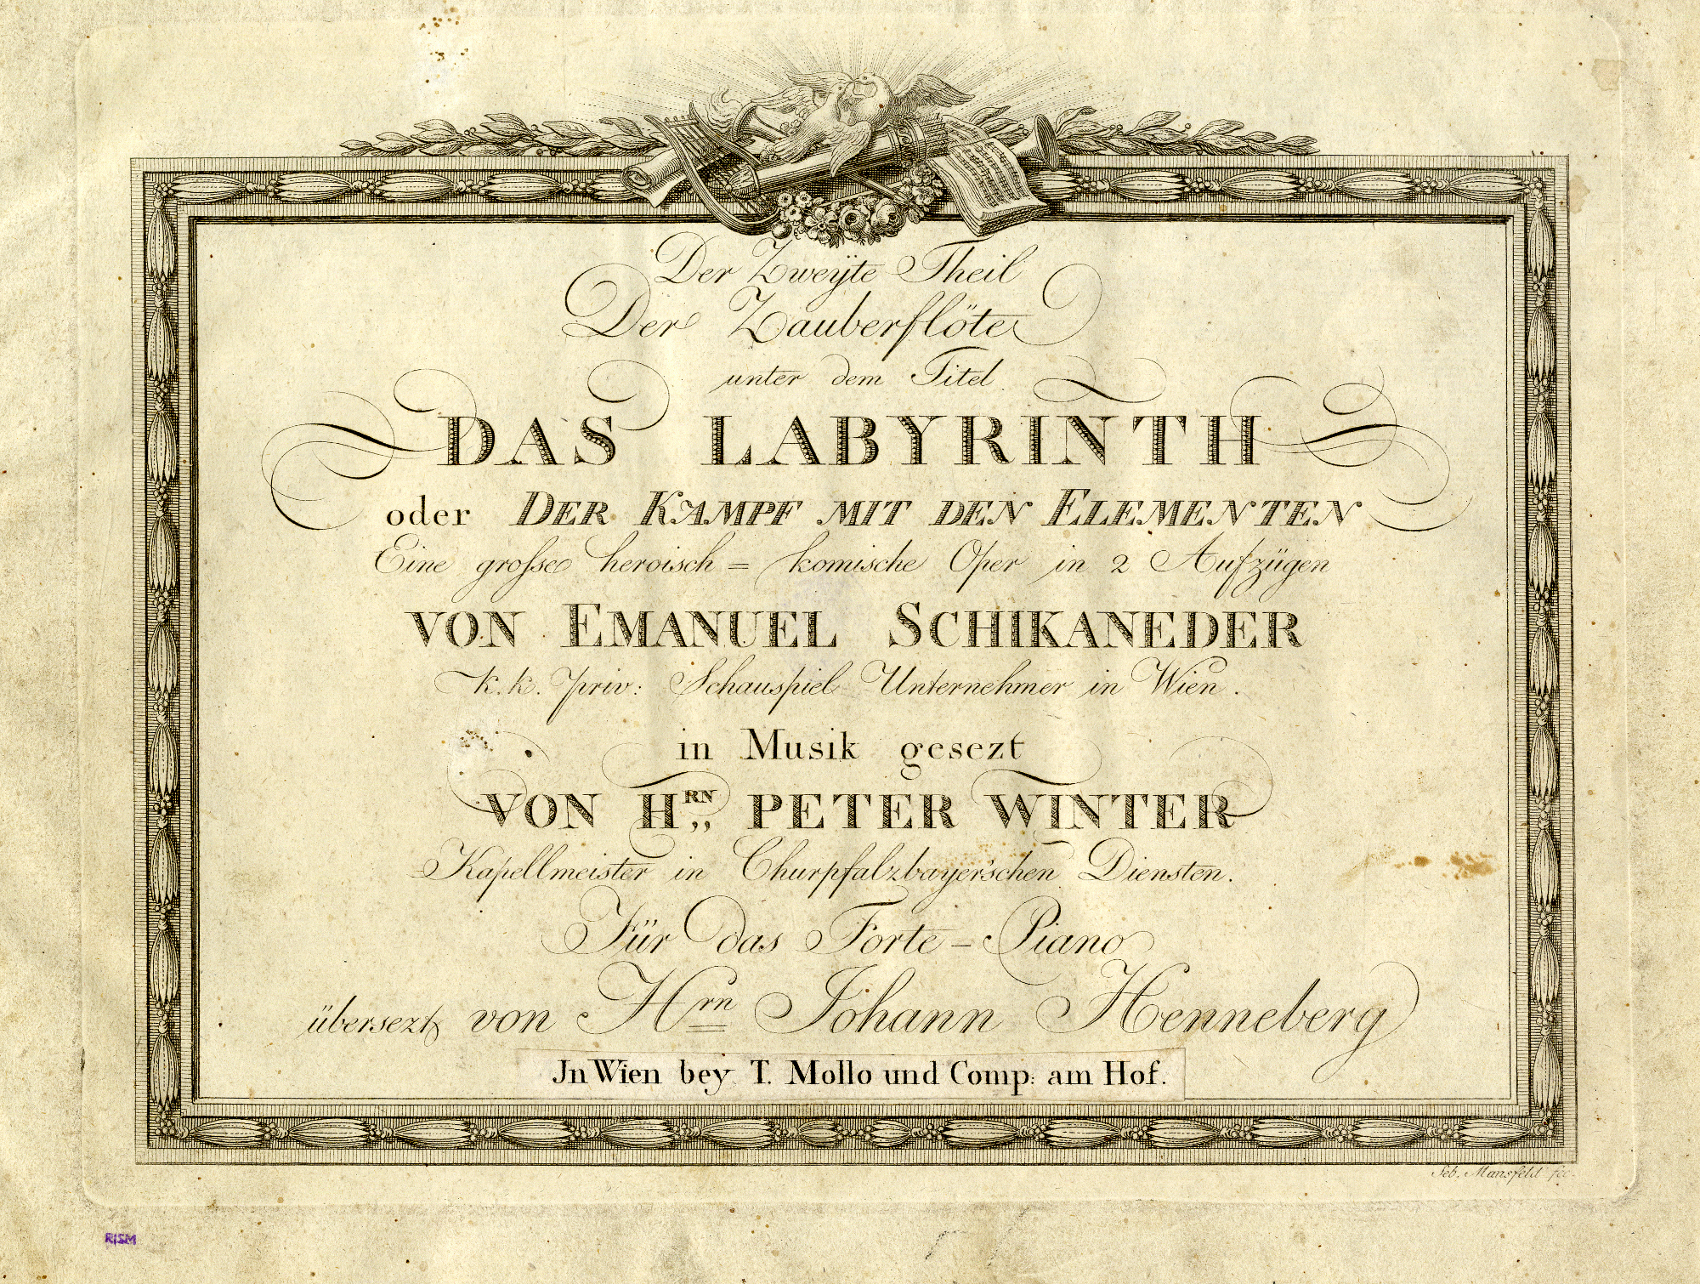 Der Zweÿte Theil
Der Zauberflöte
unter dem Titel
DAS LABYRINTH
oder DER KAMPF MIT DEN ELEMENTEN
Eine grosse heroisch = komische Oper in 2 Aufzügen
VON EMANUEL SCHIKANEDER
k. k. priv: Schauspiel Unternehmer in Wien.
in Musik gesezt
VON HRN,, PETER WINTER
Kapellmeister in Churpfalzbayer'schen Diensten.
Für das Forte-Piano
übersezt von Hrn Johann Henneberg
Jn Wien bey T. Mollo und Comp: am Hof.
Seb. Mansfeld fec.
RISM